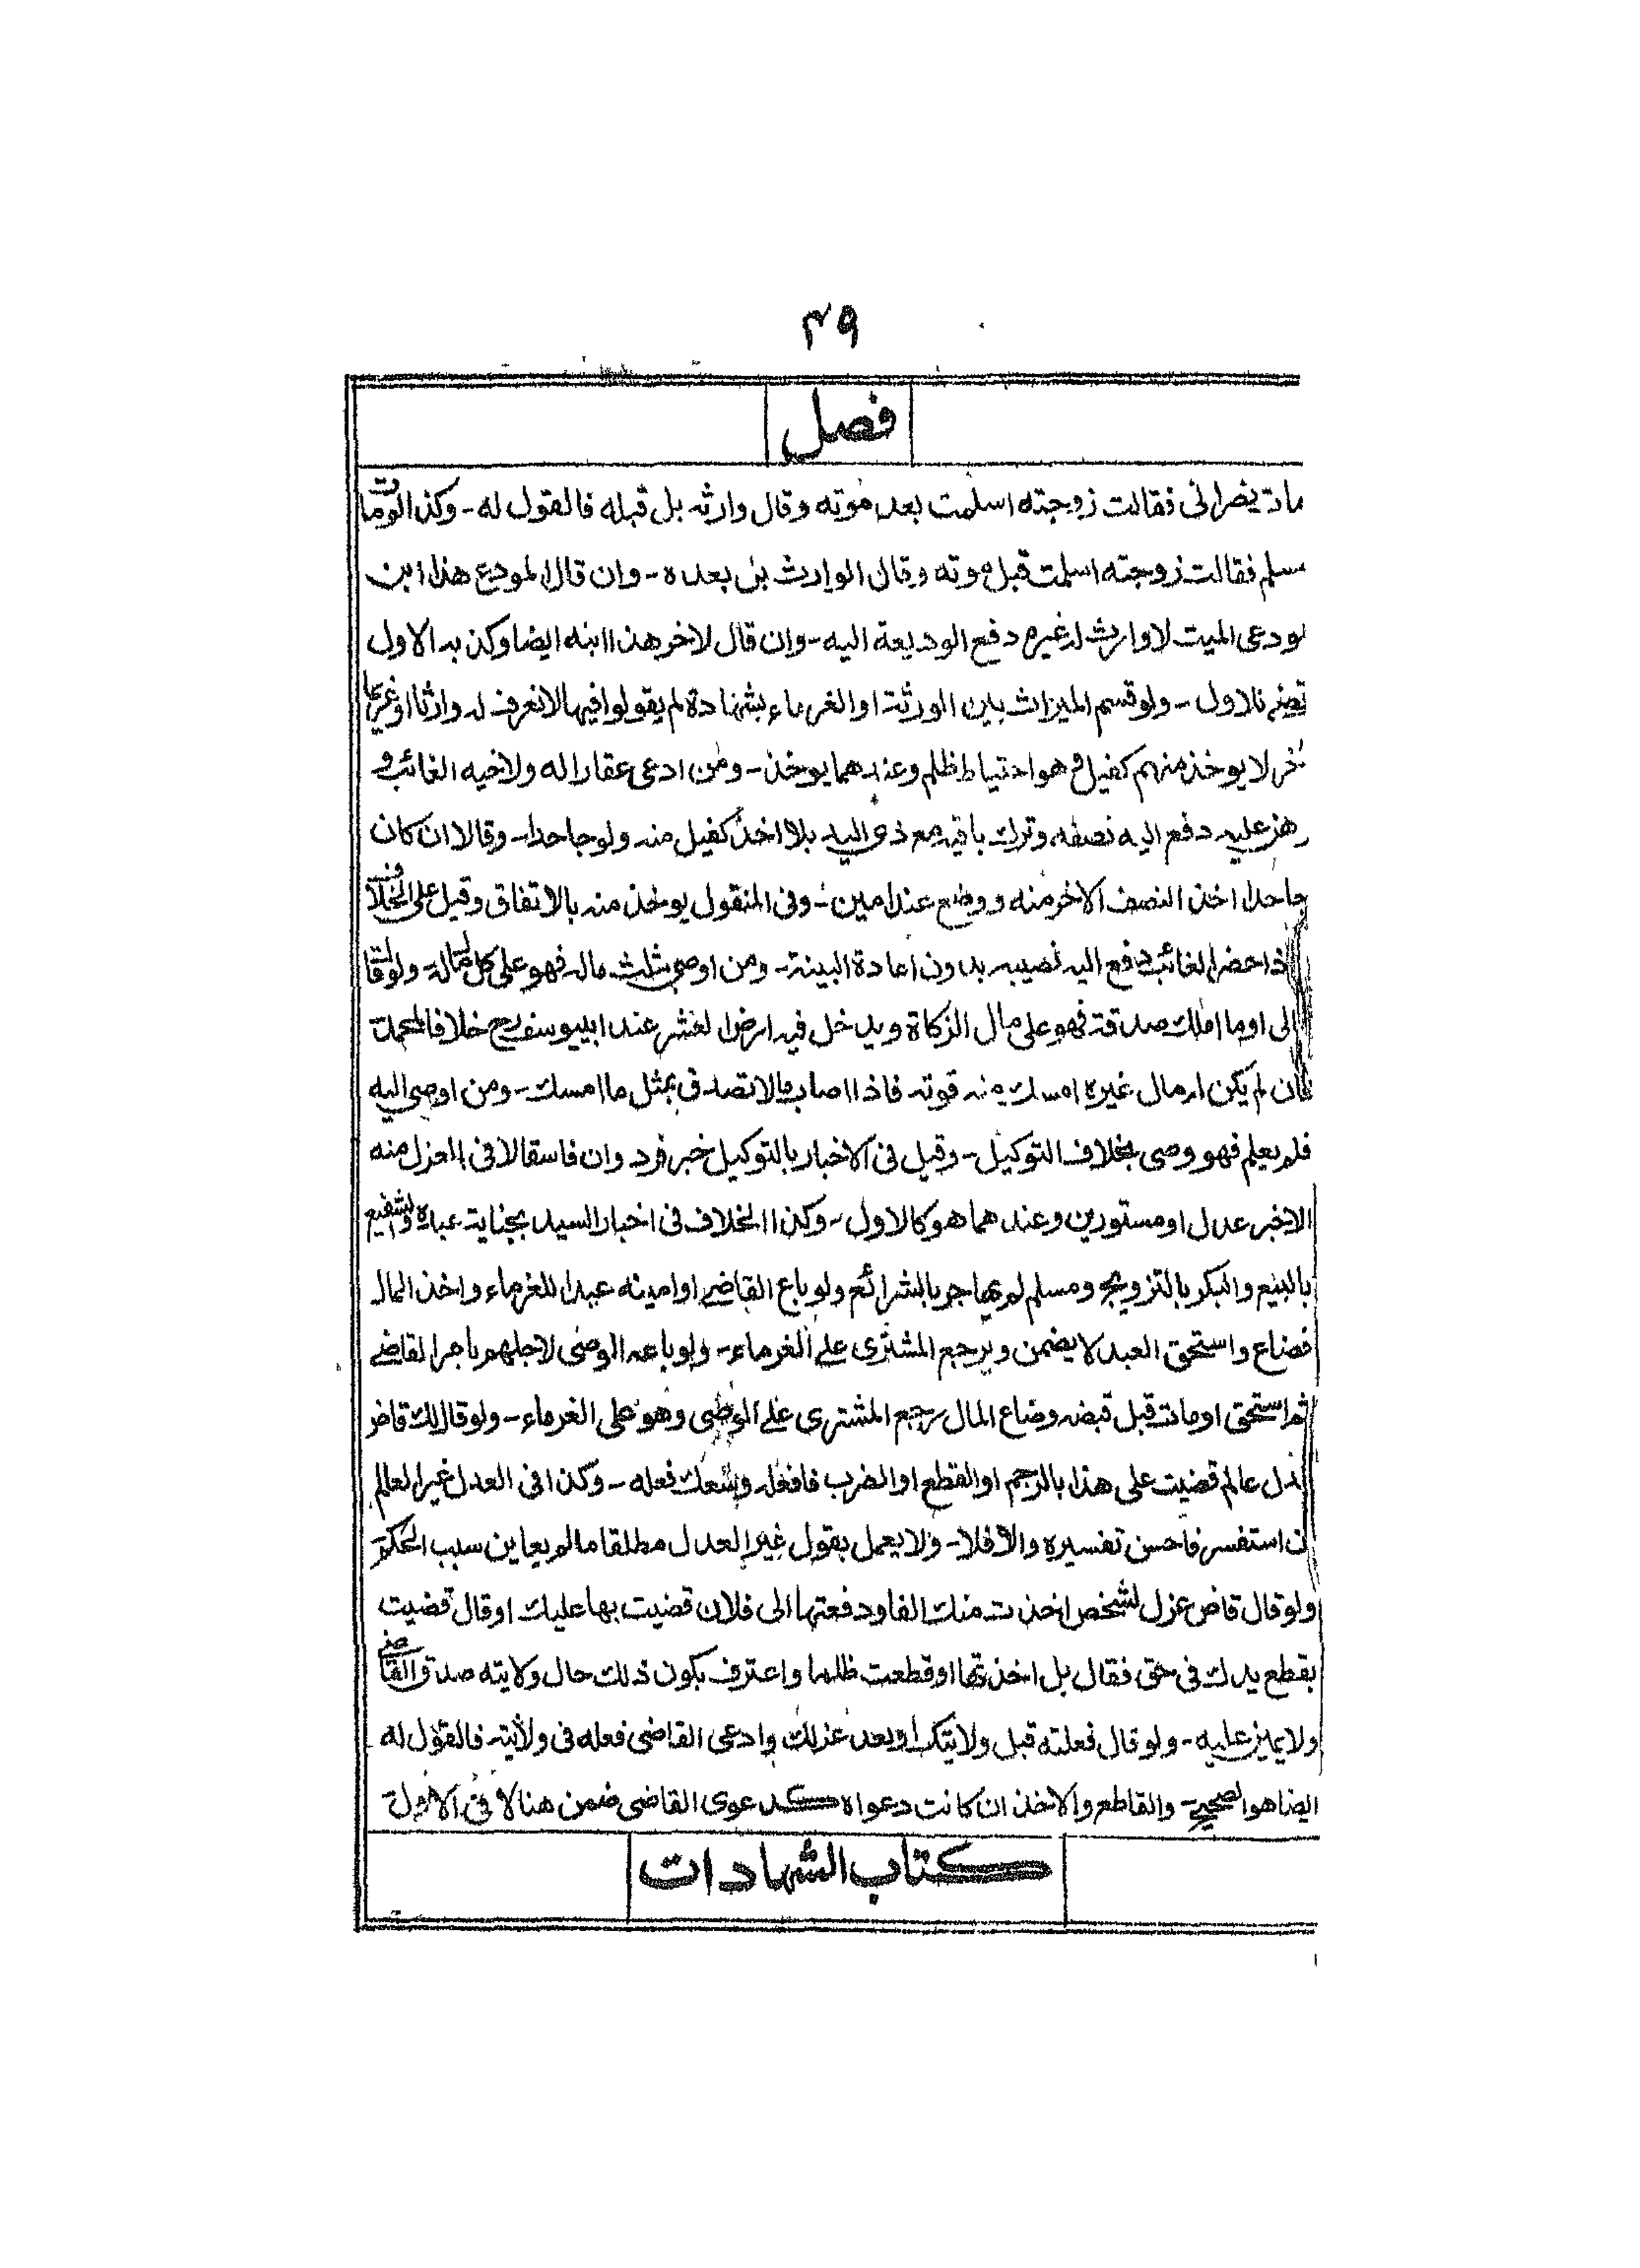 ۴۹
فصل
مات نصرانی فقالت زوجته اسلمت بعد موته وقال وارثه بل قبله فالقول له - وکذا لو مات
مسلم فقالت زوجته اسلمت قبل موته وقال الوارث بل بعده - وان قال المودع هذا ابن
مودعی المیت لا وارث له غیره دفع الودیعة الیه - وان قال لاخر هذا ابنه ایضا وکذبه الاول
قضی للاول - ولو قسم المیراث بین الورثة او الغرماء بشهادة لم یقولوا فیها لا نعرف له وارثا او غریما
اخر لا یوخذ منهم کفیل وهو احتیاط ظلم وعندهما یوخذ - ومن ادعی عقارا له ولاخیه الغائب و
برهن علیه دفع الیه نصفه وترک باقیه مع ذی الید بلا اخذ کفیل منه ولو جاحدا - وقالا ان کان
جاحدا اخذ النصف الاخر منه ووضع عند امین - وفی المنقول یوخذ منه بالاتفاق وقیل علی الخلاف
اذا حضر الغائب دفع الیه نصیبه بدون اعادة البینة - ومن اوصی بثلث ماله فهو علی کل ماله - ولو قال
مالی او ما املک صدقة فهو علی مال الزکاة ویدخل فیه ارض العشر عند ابی یوسف رح خلافا لمحمد
فان لم یکن له مال غیره امسک منه قوته فاذا اصاب مالا تصدق بمثل ما امسک - ومن اوصی الیه
فلم یعلم فهو وصی بخلاف التوکیل - وقبل فی الاخبار بالتوکیل خبر فرد وان فاسقا لا فی العزل منه
الا خبر عدل او مستورین وعندهما هو کالاول - وکذا الخلاف فی اخبار السید بجنایة عبده والشفیع
بالبیع والبکر بالتزویج ومسلم لم یهاجر بالشرائع ولو باع القاضی او امینه عبدا للغرماء واخذ المال
فضاع واستحق العبد لا یضمن ویرجع المشتری علی الغرماء - ولو باعه الوصی لاجلهم بامر القاضی
ثم استحق او مات قبل قبضه وضاع المال رجع المشتری علی الوصی وهو علی الغرماء - ولو قال لک قاض
عدل عالم قضیت علی هذا بالرجم او القطع او الضرب فافعله وسعک فعله - وکذا فی العدل غیر العالم
ان استفسر فاحسن تفسیره والا فلا - ولا یعمل بقول غیر العدل مطلقا ما لم یعاین سبب الحکم
ولو قال قاض عزل لشخص اخذت منک الفا ودفعتها الی فلان قضیت بها علیک او قال قضیت
بقطع یدک فی حق فقال بل اخذتها او قطعت ظلما واعترف بکون ذلک حال ولایته صدق القاضی
ولا یمین علیه - ولو قال فعلته قبل ولایتک او بعد عزلک وادعی القاضی فعله فی ولایته فالقول له
ایضا هو الصحیح - والقاطع والاخذ ان کانت دعواه کدعوی القاضی ضمن هنا لا فی الاول
کتاب الشهادات